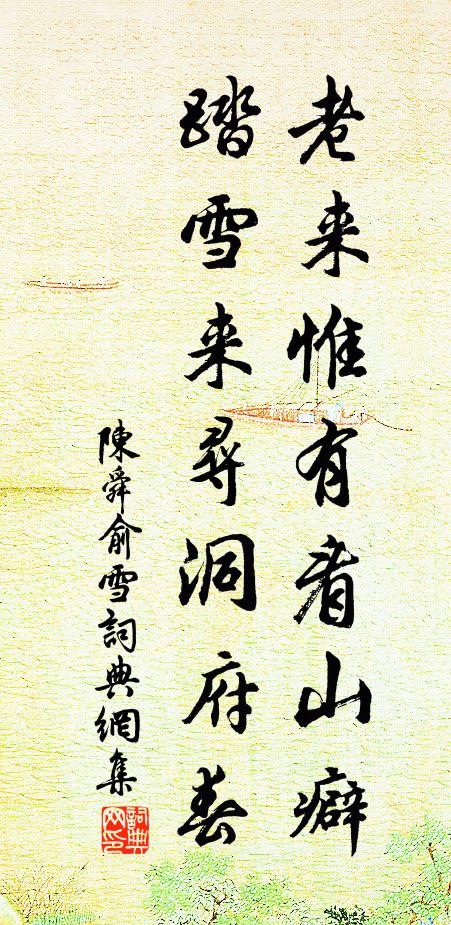 老来惟有看山癖
踏雪来尋洞府春
陳舜俞雪詞典網集
詞典网印